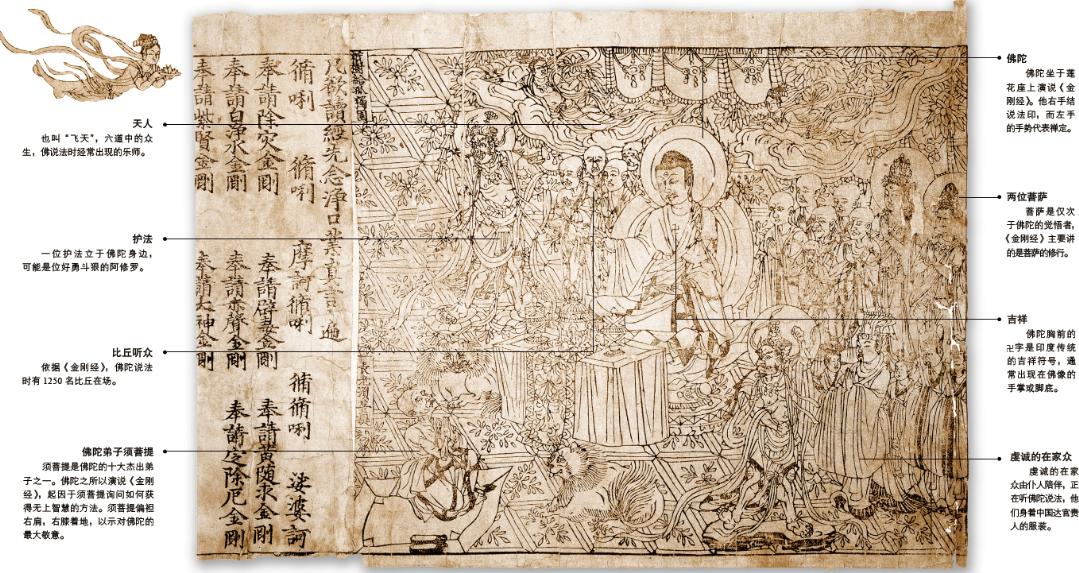 天人
也叫“飞天”，六道中的众
生，佛说法时经常出现的乐师。
护法
一位护法立于佛陀身边，
可能是位好勇斗狠的阿修罗。
比丘听众
依据《金刚经》，佛陀说法
时有 1250 名比丘在场。
佛陀弟子须菩提
须菩提是佛陀的十大杰出弟
子之一。佛陀之所以演说《金刚
经》，起因于须菩提询问如何获
得无上智慧的方法。须菩提偏袒
右肩，右膝着地，以示对佛陀的
最大敬意。
凡欲讀經先念淨口業真言遍
脩唎 脩唎 摩訶脩唎 脩脩唎 娑婆訶
奉請除灾金剛 奉請辟毒金剛 奉請黄随求金剛
奉請白淨水金剛 奉請赤聲金剛 奉請定除厄金剛
奉請紫賢金剛 奉請大神金剛
長老須菩提
佛陀
佛陀坐于莲
花座上演说《金
刚经》。他右手结
说法印，而左手
的手势代表禅定。
两位菩萨
菩萨是仅次
于佛陀的觉悟者，
《金刚经》主要讲
的是菩萨的修行。
吉祥
佛陀胸前的
卍字是印度传统
的吉祥符号，通
常出现在佛像的
手掌或脚底。
虔诚的在家众
虔诚的在家
众由仆人陪伴，正
在听佛陀说法，他
们身着中国达官贵
人的服装。